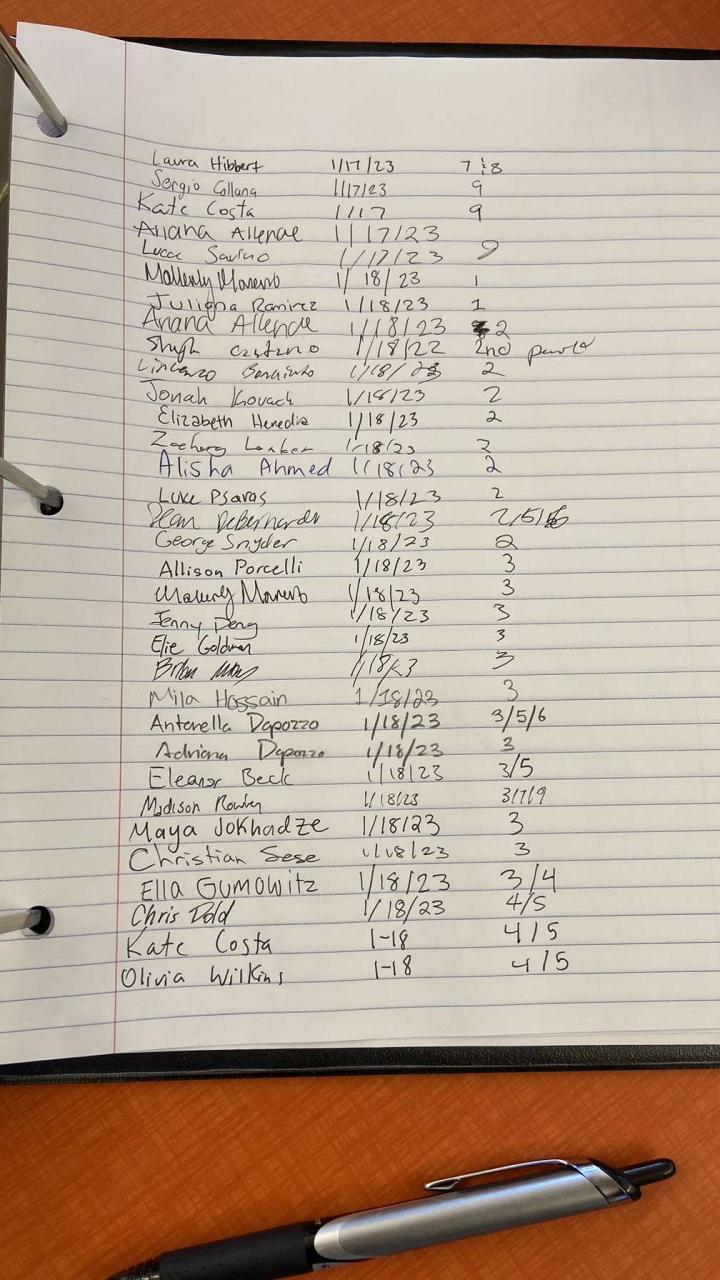 Laura Hibbert 1/17/23 7 & 8
Sergio Collana 1/17/23 9
Kate Costa 1/17 9
Ariana Allende 1/17/23
Luca Savino 1/17/23 9
Mallerly Moreno 1/18/23 1
Juliana Ramirez 1/18/23 1
Ariana Allende 1/18/23 2
1/18/22 2nd
1/18/23 2
Jonah Kovach 1/18/23 2
Elizabeth Heredia 1/18/23 2
Zachary 1/18/23 2
Alisha Ahmed 1/18/23 2
Luke Psaras 1/18/23 2
Dean DeBernardo 1/18/23 2/5/6
George Snyder 1/18/23 2
Allison Porcelli 1/18/23 3
Mallerly Moreno 1/18/23 3
Jenny Deng 1/18/23 3
Elie Goldman 1/18/23 3
Brian 1/18/23 3
Mila Hossain 1/18/23 3
Antonella Dapozzo 1/18/23 3/5/6
Adriana Dapozzo 1/18/23 3
Eleanor Beck 1/18/23 3/5
Madison 1/18/23 3/7/9
Maya Jokhadze 1/18/23 3
Christian Sese 1/18/23 3
Ella Gumowitz 1/18/23 3/4
Chris Dold 1/18/23 4/5
Kate Costa 1-18 4/5
Olivia Wilkins 1-18 4/5